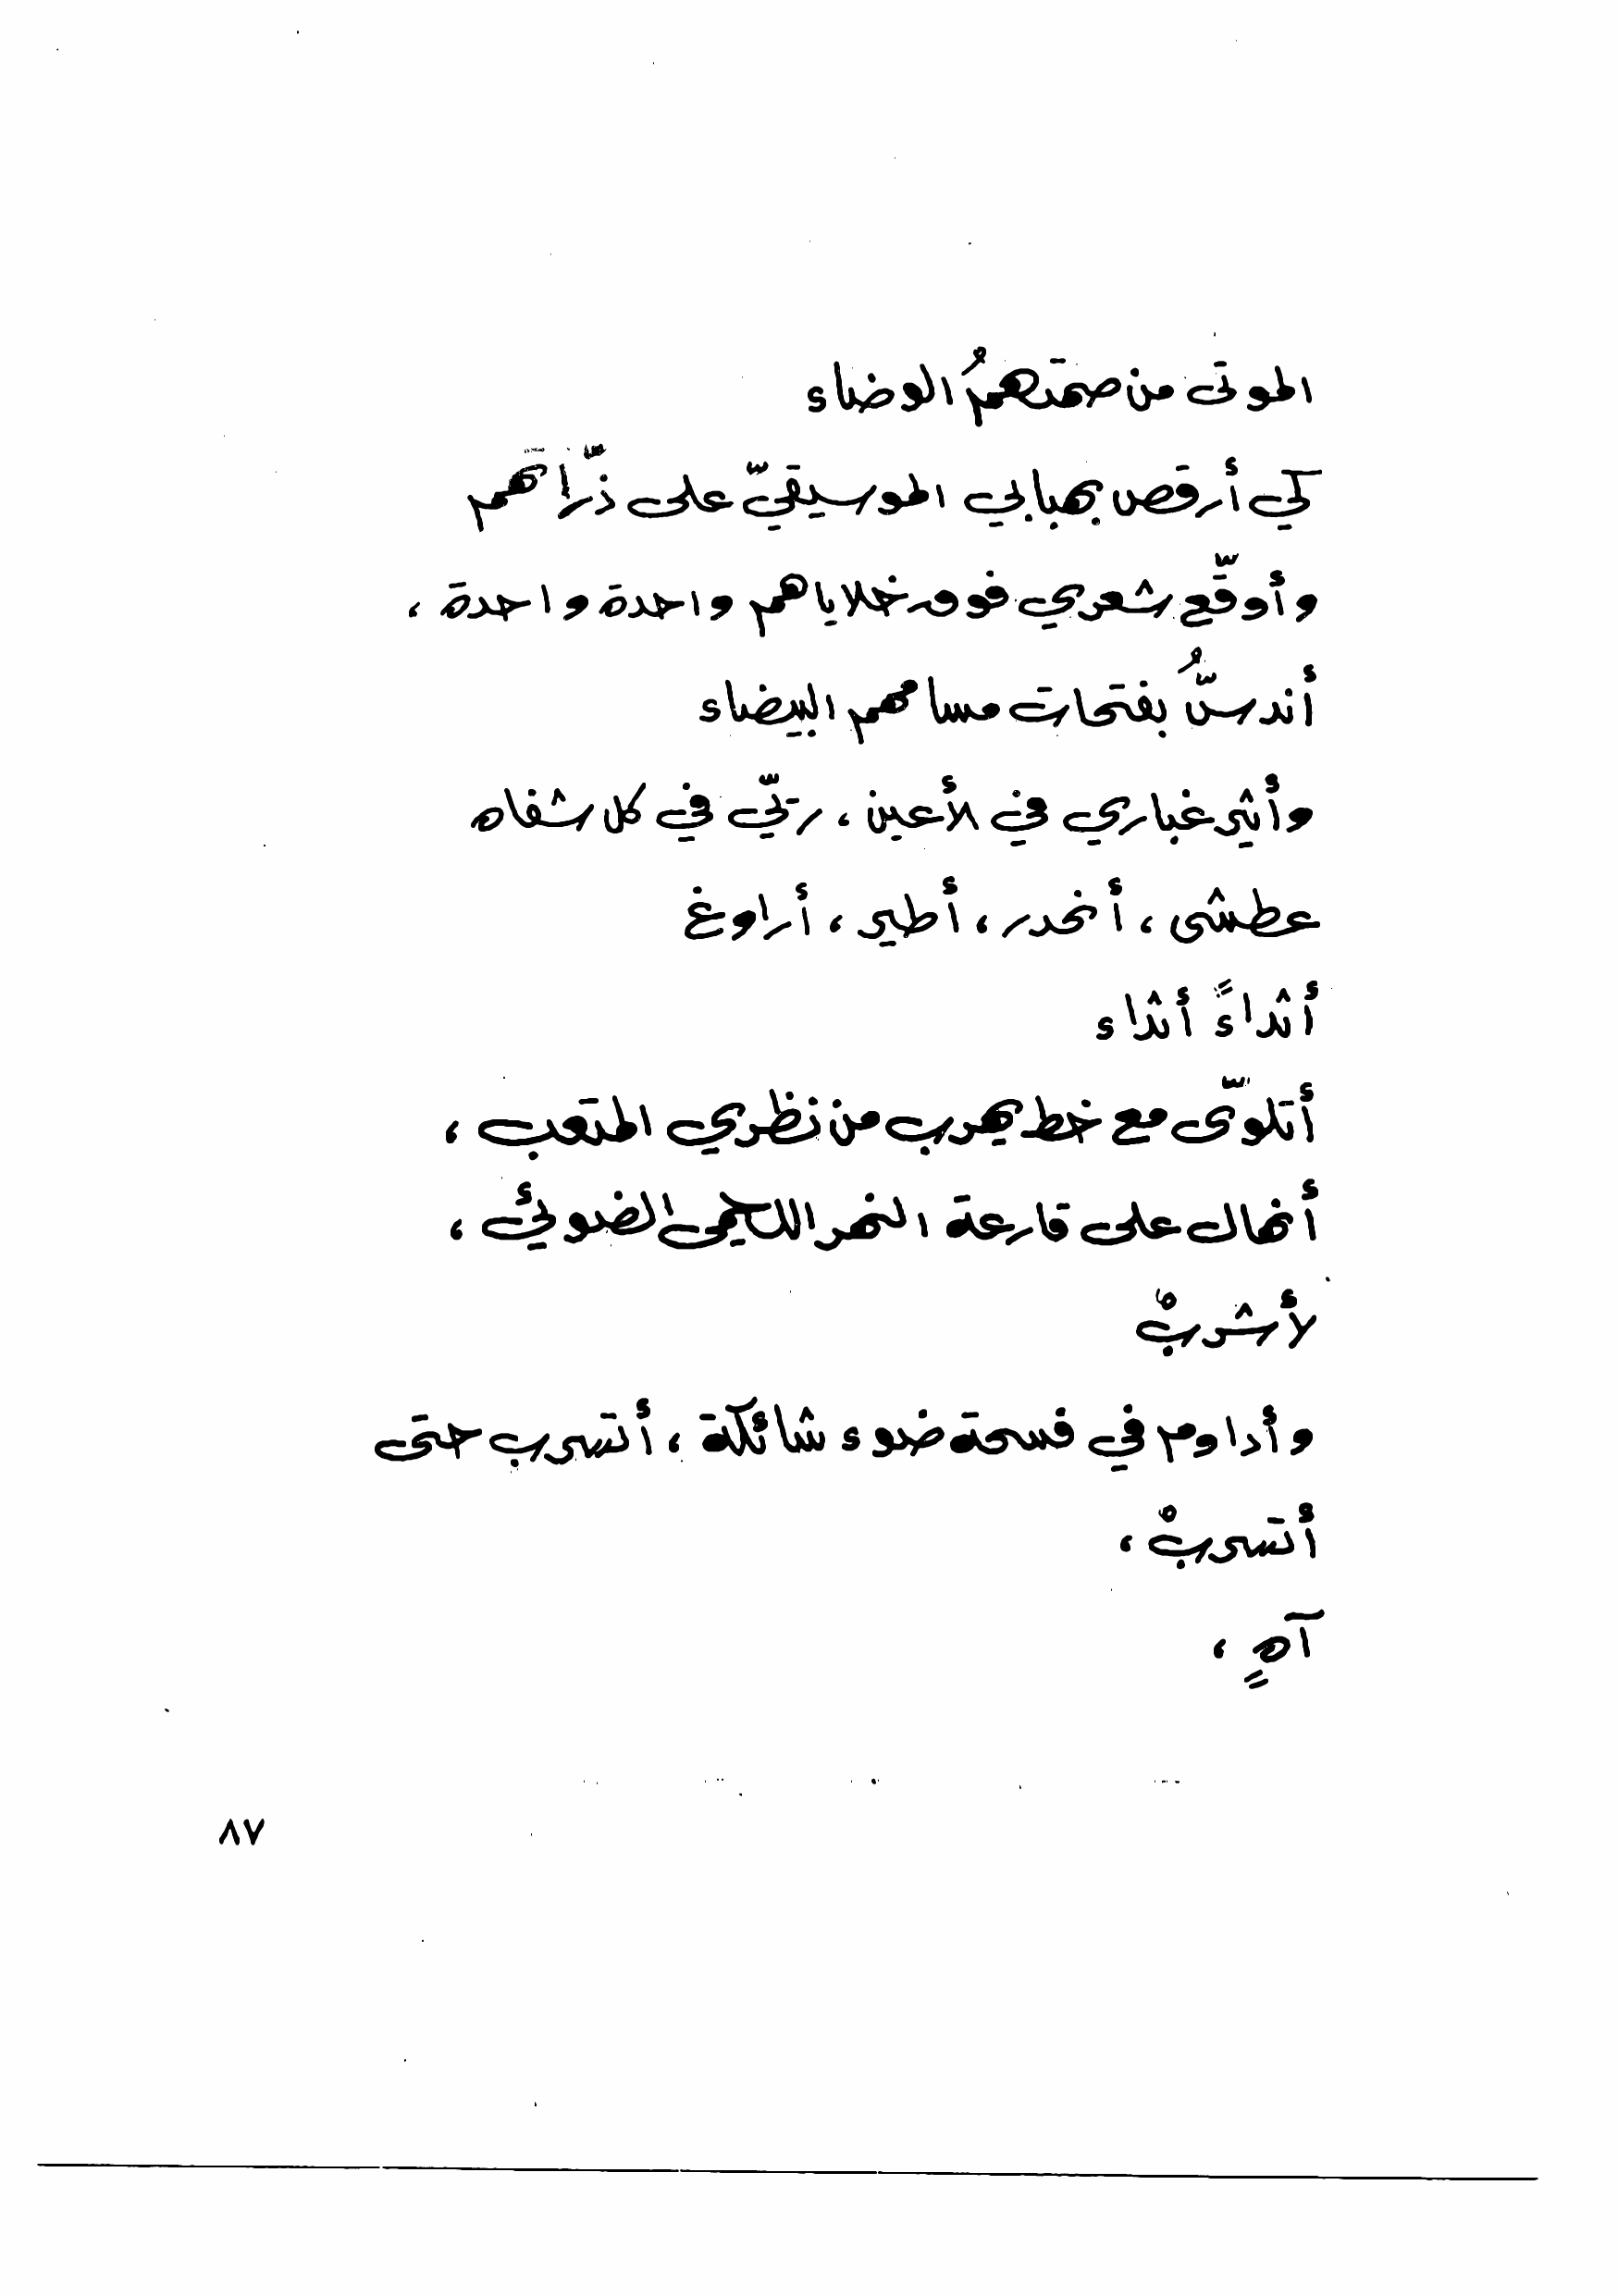 الموتى من صمتهمُ الوضاء
كي أرقص بهبابي الموسيقيّ على ذرّاتهم
وأوقّع شعري فوق خلاياهم واحدة واحدة ،
أندسُّ بفتحات مسامهم البيضاء
وأثير غباري في الأعين ، رتّي في كل شفاه
عطشى ، أنحدر ، أطير ، أراوغ
أثداءً أثداء
أتلوّى مع خط يهرب من نظري المتعب ،
أنهال على قارعة النهر الضوئي ،
لأشربْ
وأداوم في فسحة ضوء شائكة ، أتسرب حتى
أتسربْ ،
آهٍ ،
٨٧